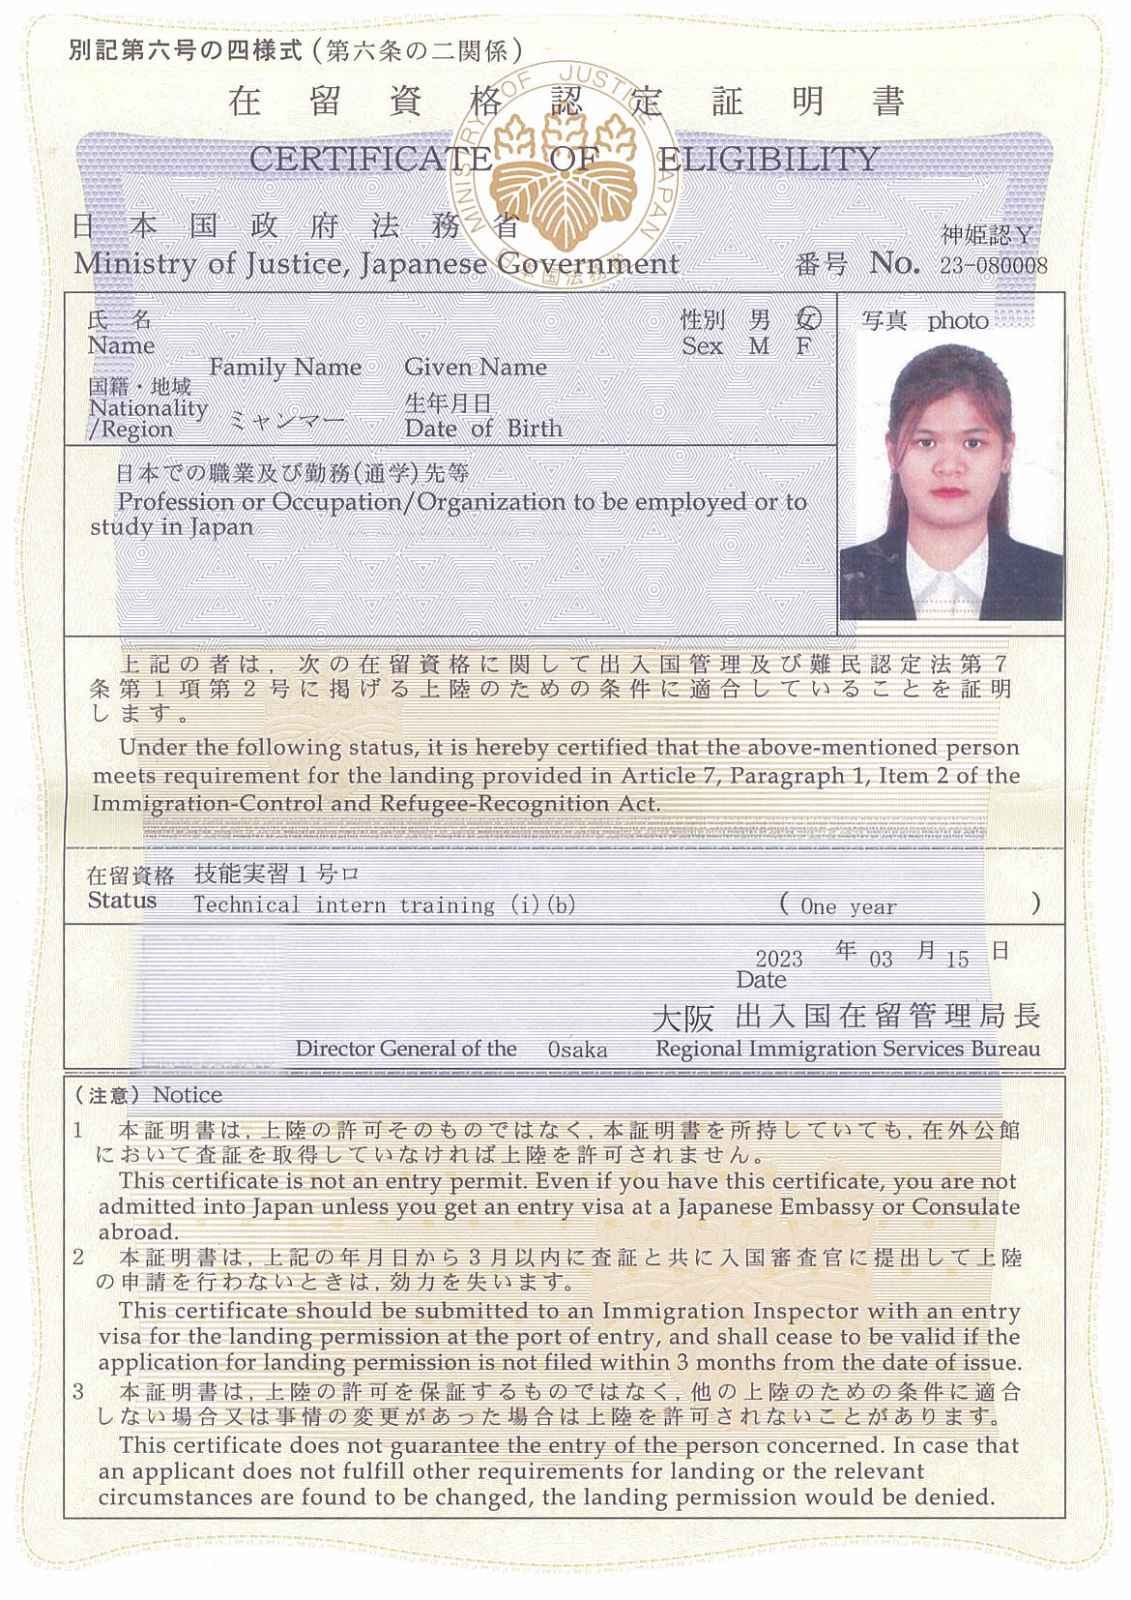 別記第六号の四様式（第六条の二関係）
在留資格認定証明書
CERTIFICATE OF ELIGIBILITY
日本国政府法務省
Ministry of Justice, Japanese Government
神姫認Y
番号 No. 23-080008
MINISTRY OF JUSTICE JAPAN
日本国法務省
氏名
Name
Family Name Given Name
性別 男 女
Sex M F
写真 photo
国籍・地域
Nationality
/Region
ミャンマー
生年月日
Date of Birth
日本での職業及び勤務(通学)先等
Profession or Occupation/Organization to be employed or to
study in Japan
上記の者は，次の在留資格に関して出入国管理及び難民認定法第７
条第１項第２号に掲げる上陸のための条件に適合していることを証明
します。
Under the following status, it is hereby certified that the above-mentioned person
meets requirement for the landing provided in Article 7, Paragraph 1, Item 2 of the
Immigration-Control and Refugee-Recognition Act.
在留資格 技能実習１号ロ
Status Technical intern training (i)(b) ( One year )
2023 年 03 月 15 日
Date
大阪 出入国在留管理局長
Director General of the Osaka Regional Immigration Services Bureau
（注意）Notice
1 本証明書は，上陸の許可そのものではなく，本証明書を所持していても，在外公館
において査証を取得していなければ上陸を許可されません。
This certificate is not an entry permit. Even if you have this certificate, you are not
admitted into Japan unless you get an entry visa at a Japanese Embassy or Consulate
abroad.
2 本証明書は，上記の年月日から３月以内に査証と共に入国審査官に提出して上陸
の申請を行わないときは，効力を失います。
This certificate should be submitted to an Immigration Inspector with an entry
visa for the landing permission at the port of entry, and shall cease to be valid if the
application for landing permission is not filed within 3 months from the date of issue.
3 本証明書は，上陸の許可を保証するものではなく，他の上陸のための条件に適合
しない場合又は事情の変更があった場合は上陸を許可されないことがあります。
This certificate does not guarantee the entry of the person concerned. In case that
an applicant does not fulfill other requirements for landing or the relevant
circumstances are found to be changed, the landing permission would be denied.